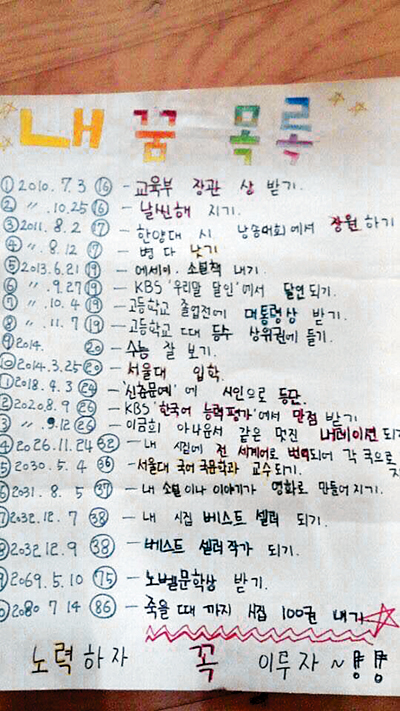 내 꿈 목록
① 2010. 7. 3 ⑯ - 교육부 장관 상 받기.
② 〃 .10.25 ⑯ - 날씬해 지기.
③ 2011. 8. 2 ⑰ - 한양대 시 낭송대회에서 장원 하기
④ 〃. 8.12 ⑰ - 병 다 낫기
⑤ 2013.6.21 ⑲ - 에세이. 소설책 내기.
〃 .9.27 ⑲ - KBS '우리말 달인'에서 달인 되기.
〃. 10. 4 ⑲ - 고등학교 졸업전에 대통령상 받기.
〃. 11. 7 ⑲ - 고등학교 때 등수 상위권에 들기.
⑨ 2014. ⑳ - 수능 잘 보기.
2014.3.25 ⑳ - 서울대 입학.
2018. 4. 3 ㉔ - '신춘문예'에 시인으로 등단.
2020.8. 9 ㉖ - KBS '한국어 능력평가'에서 만점 받기
〃 .9.12 ㉖ - 이금희 아나운서 같은 멋진 내레이션 되기
2026.11.24 ㉜ - 내 시집에 전 세계어로 번역되어 각 국으로
2030. 5. 4 ㊱ - 서울대 국어 국문학과 교수되기.
2031. 8. 5 ㊲ - 내 소설이나 이야기가 영화로 만들어 지기.
2032. 12. 7 ㊳ - 내 시집 베스트 셀러 되기.
2032.12. 9 ㊳ - 베스트 셀러작가 되기.
2069.5.10 (75) - 노벨문학상 받기.
2080 7 14 (86) - 죽을 때 까지 시집 100권 내기
노력하자 꼭 이루자~!!